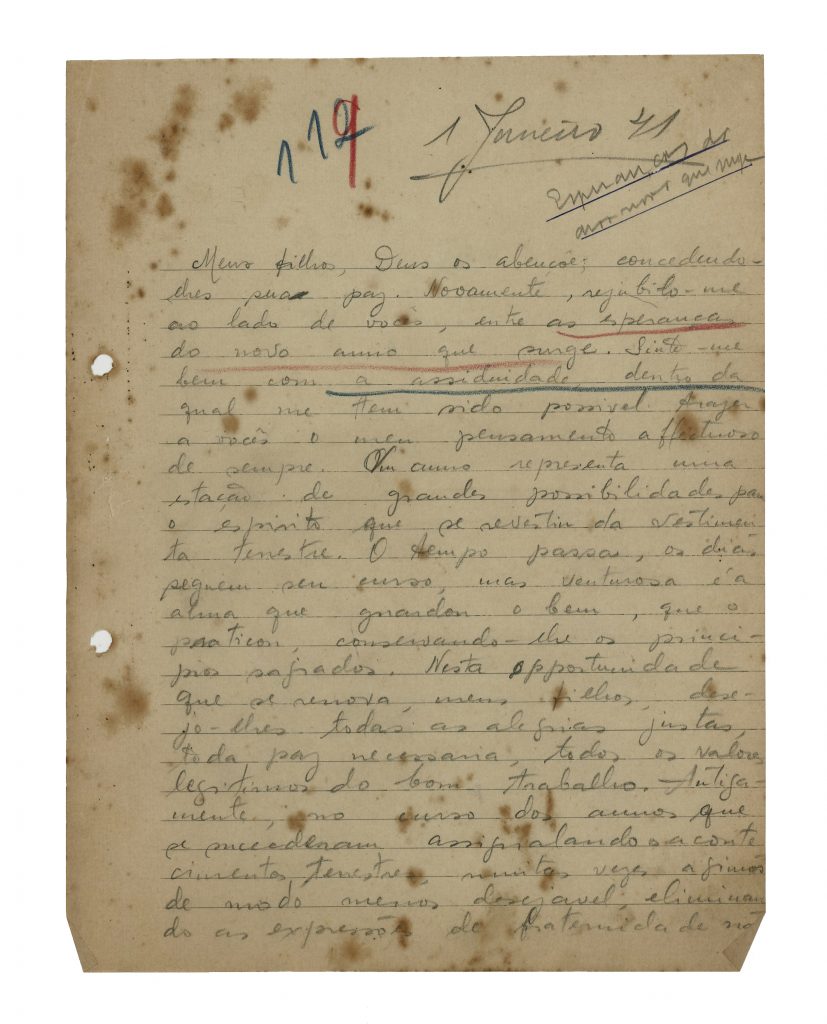 112
9
1 Janeiro 41
Esperanças do
anno novo que surge
Meus filhos, Deus os abençoe; concedendo-
lhes sua paz. Novamente, rejubilo-me
ao lado de vocês, entre as esperanças
do novo anno que surge. Sinto-me
bem com a assiduidade, dentro da
qual me tem sido possivel trazer
a vocês o meu pensamento affectuoso
de sempre. Um anno representa uma
estação de grandes possibilidades para
o espirito que se revestiu da vestimen
ta terrestre. O tempo passa, os dias
seguem seu curso, mas venturosa é a
alma que guardou o bem, que o
praticou, conservando-lhe os princi-
pios sagrados. Nesta opportunidade
que se renova, meus filhos, dese-
jo-lhes todas as alegrias justas,
toda paz necessaria, todos os valores
legitimos do bom trabalho. Antiga-
mente, no curso dos annos que
se succederam assignalando os aconte
cimentos terrestres, muitas vezes agimos
de modo menos desejavel, eliminan
do as expressões de fraternidade não